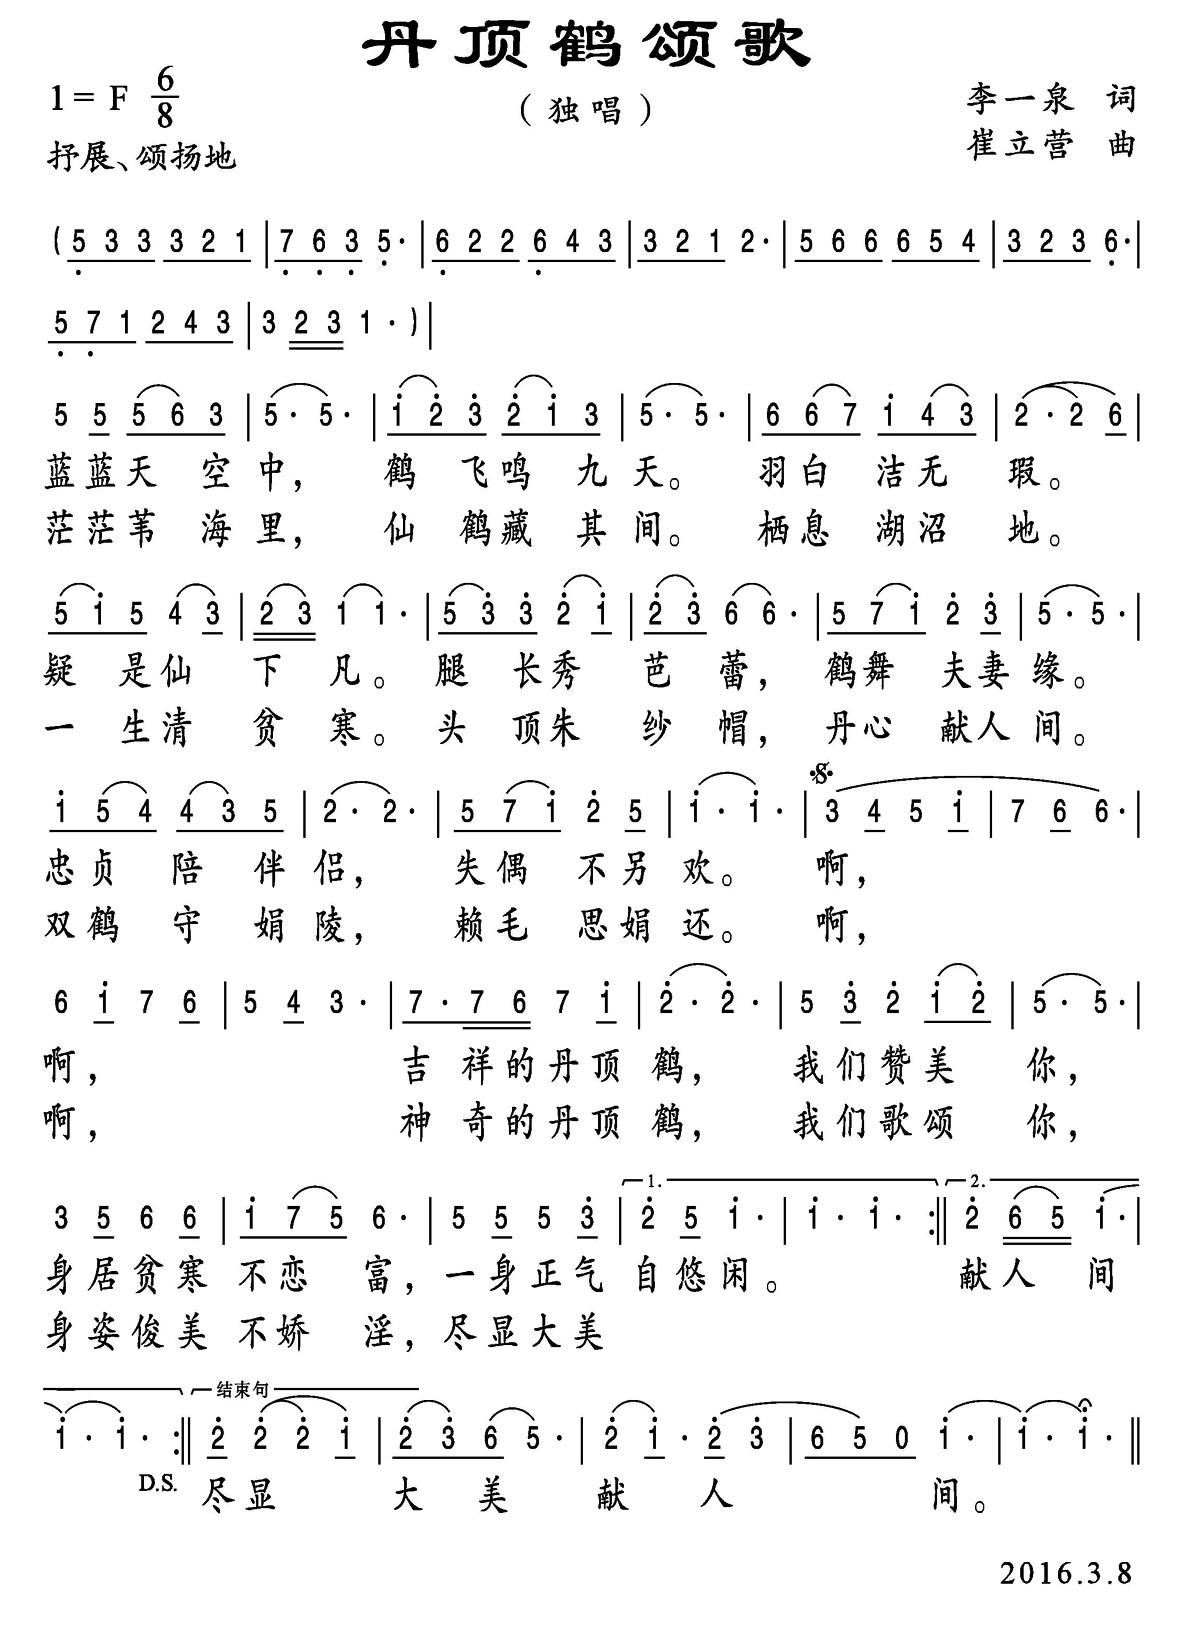 丹顶鹤颂歌
1= F 6/8
(独唱)
李一泉 词
抒展、颂扬地
崔立营 曲
(5 3 3 3 2 1 | 7 6 3 5· | 6 2 2 6 4 3 | 3 2 1 2· | 5 6 6 6 5 4 | 3 2 3 6· |
5 7 1 2 4 3 | 3 2 3 1 ·) |
5 5 5 6 3 | 5· 5· | 1 2 3 2 1 3 | 5· 5· | 6 6 7 1 4 3 | 2·2 6 |
蓝蓝天 空中, 鹤 飞鸣 九天。 羽白 洁无 瑕。
茫茫苇 海里, 仙 鹤藏 其间。 栖息 湖沼 地。
5 1 5 4 3 | 2 3 1 1· | 5 3 3 2 1 | 2 3 6 6· | 5 7 1 2 3 | 5· 5· |
疑 是仙 下 凡。 腿 长秀 芭 蕾, 鹤舞 夫妻缘。
一 生清 贫 寒。 头 顶朱 纱 帽, 丹心 献人间。
1 5 4 4 3 5 | 2· 2· | 5 7 1 2 5 | 1· 1· | 3 4 5 1 | 7 6 6· |
忠贞 陪 伴 侣, 失偶 不另 欢。 啊,
双鹤 守 娟 陵, 赖毛 思娟 还。 啊,
6 1 7 6 | 5 4 3· | 7·7 6 7 1 | 2· 2· | 5 3 2 1 2 | 5· 5· |
啊, 吉 祥的丹顶 鹤, 我们赞美 你,
啊, 神 奇的丹顶 鹤, 我们歌颂 你,
1. 2.
3 5 6 6 | 1 7 5 6· | 5 5 5 3 | 2 5 1· | 1· 1· :‖ 2 6 5 1· |
身居贫寒 不恋 富, 一身正气 自悠闲。 献人 间
身姿俊美 不娇 淫, 尽显大美
结束句
1· 1· :‖ 2 2 2 1 | 2 3 6 5· | 2 1· 2 3 | 6 5 0 1· | 1· 1· ‖
D.S. 尽显 大 美 献 人 间。
2016.3.8